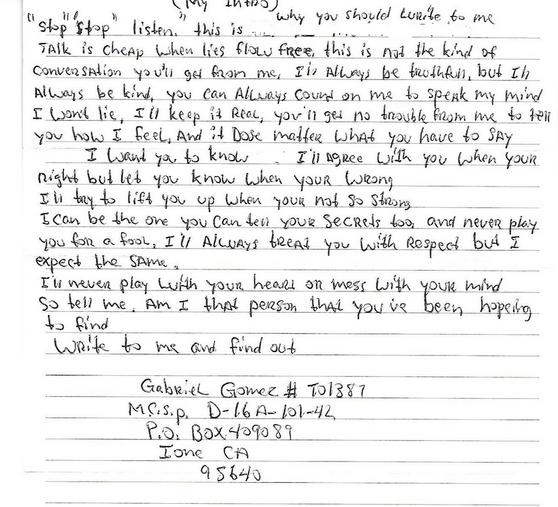 (My Intro)
why you should write to me
"Stop" "Stop" listen, this is
TAlk is cheap when lies flow free, this is not the kind of
conversation you'll get from me, I'll Always be truthfull, but I'll
Always be kind, you can Always count on me to speak my mind
I won't lie, I'll keep it Real, you'll get no trouble from me to tell
you how I feel, And it Dose matter what you have to SAy
I want you to know I'll agree with you when your
right but let you know when your wrong
I'll try to lift you up when your not so strong
I can be the one you can tell your Secrets too, and never play
you for a fool, I'll Always treat you with Respect but I
expect the SAme.
I'll never play with your heart or mess with your mind
So tell me, Am I that person that you've been hopeing
to find
Write to me and find out
Gabriel Gomez # T01387
M.C.S.p. D-16A-101-42
P.O. Box 409089
Ione CA
95640